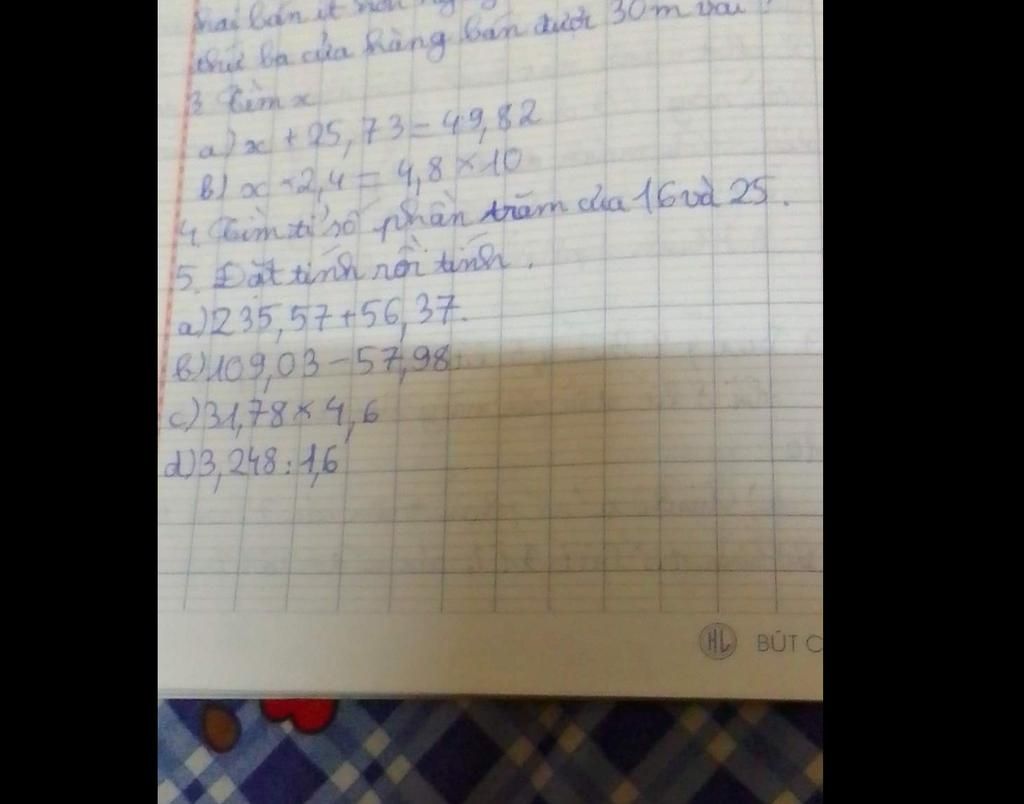 hai bán ít hơn
thứ ba cửa hàng bán được 30m vải
3. Tìm x
a) x + 25,73 = 49,82
b) x - 2,4 = 4,8 × 10
4. Tìm tỉ số phần trăm của 16 và 25.
5. Đặt tính rồi tính.
a) 235,57 + 56,37.
b) 109,03 - 57,98
c) 31,78 × 4,6
d) 3,248 : 1,6
HL BÚT